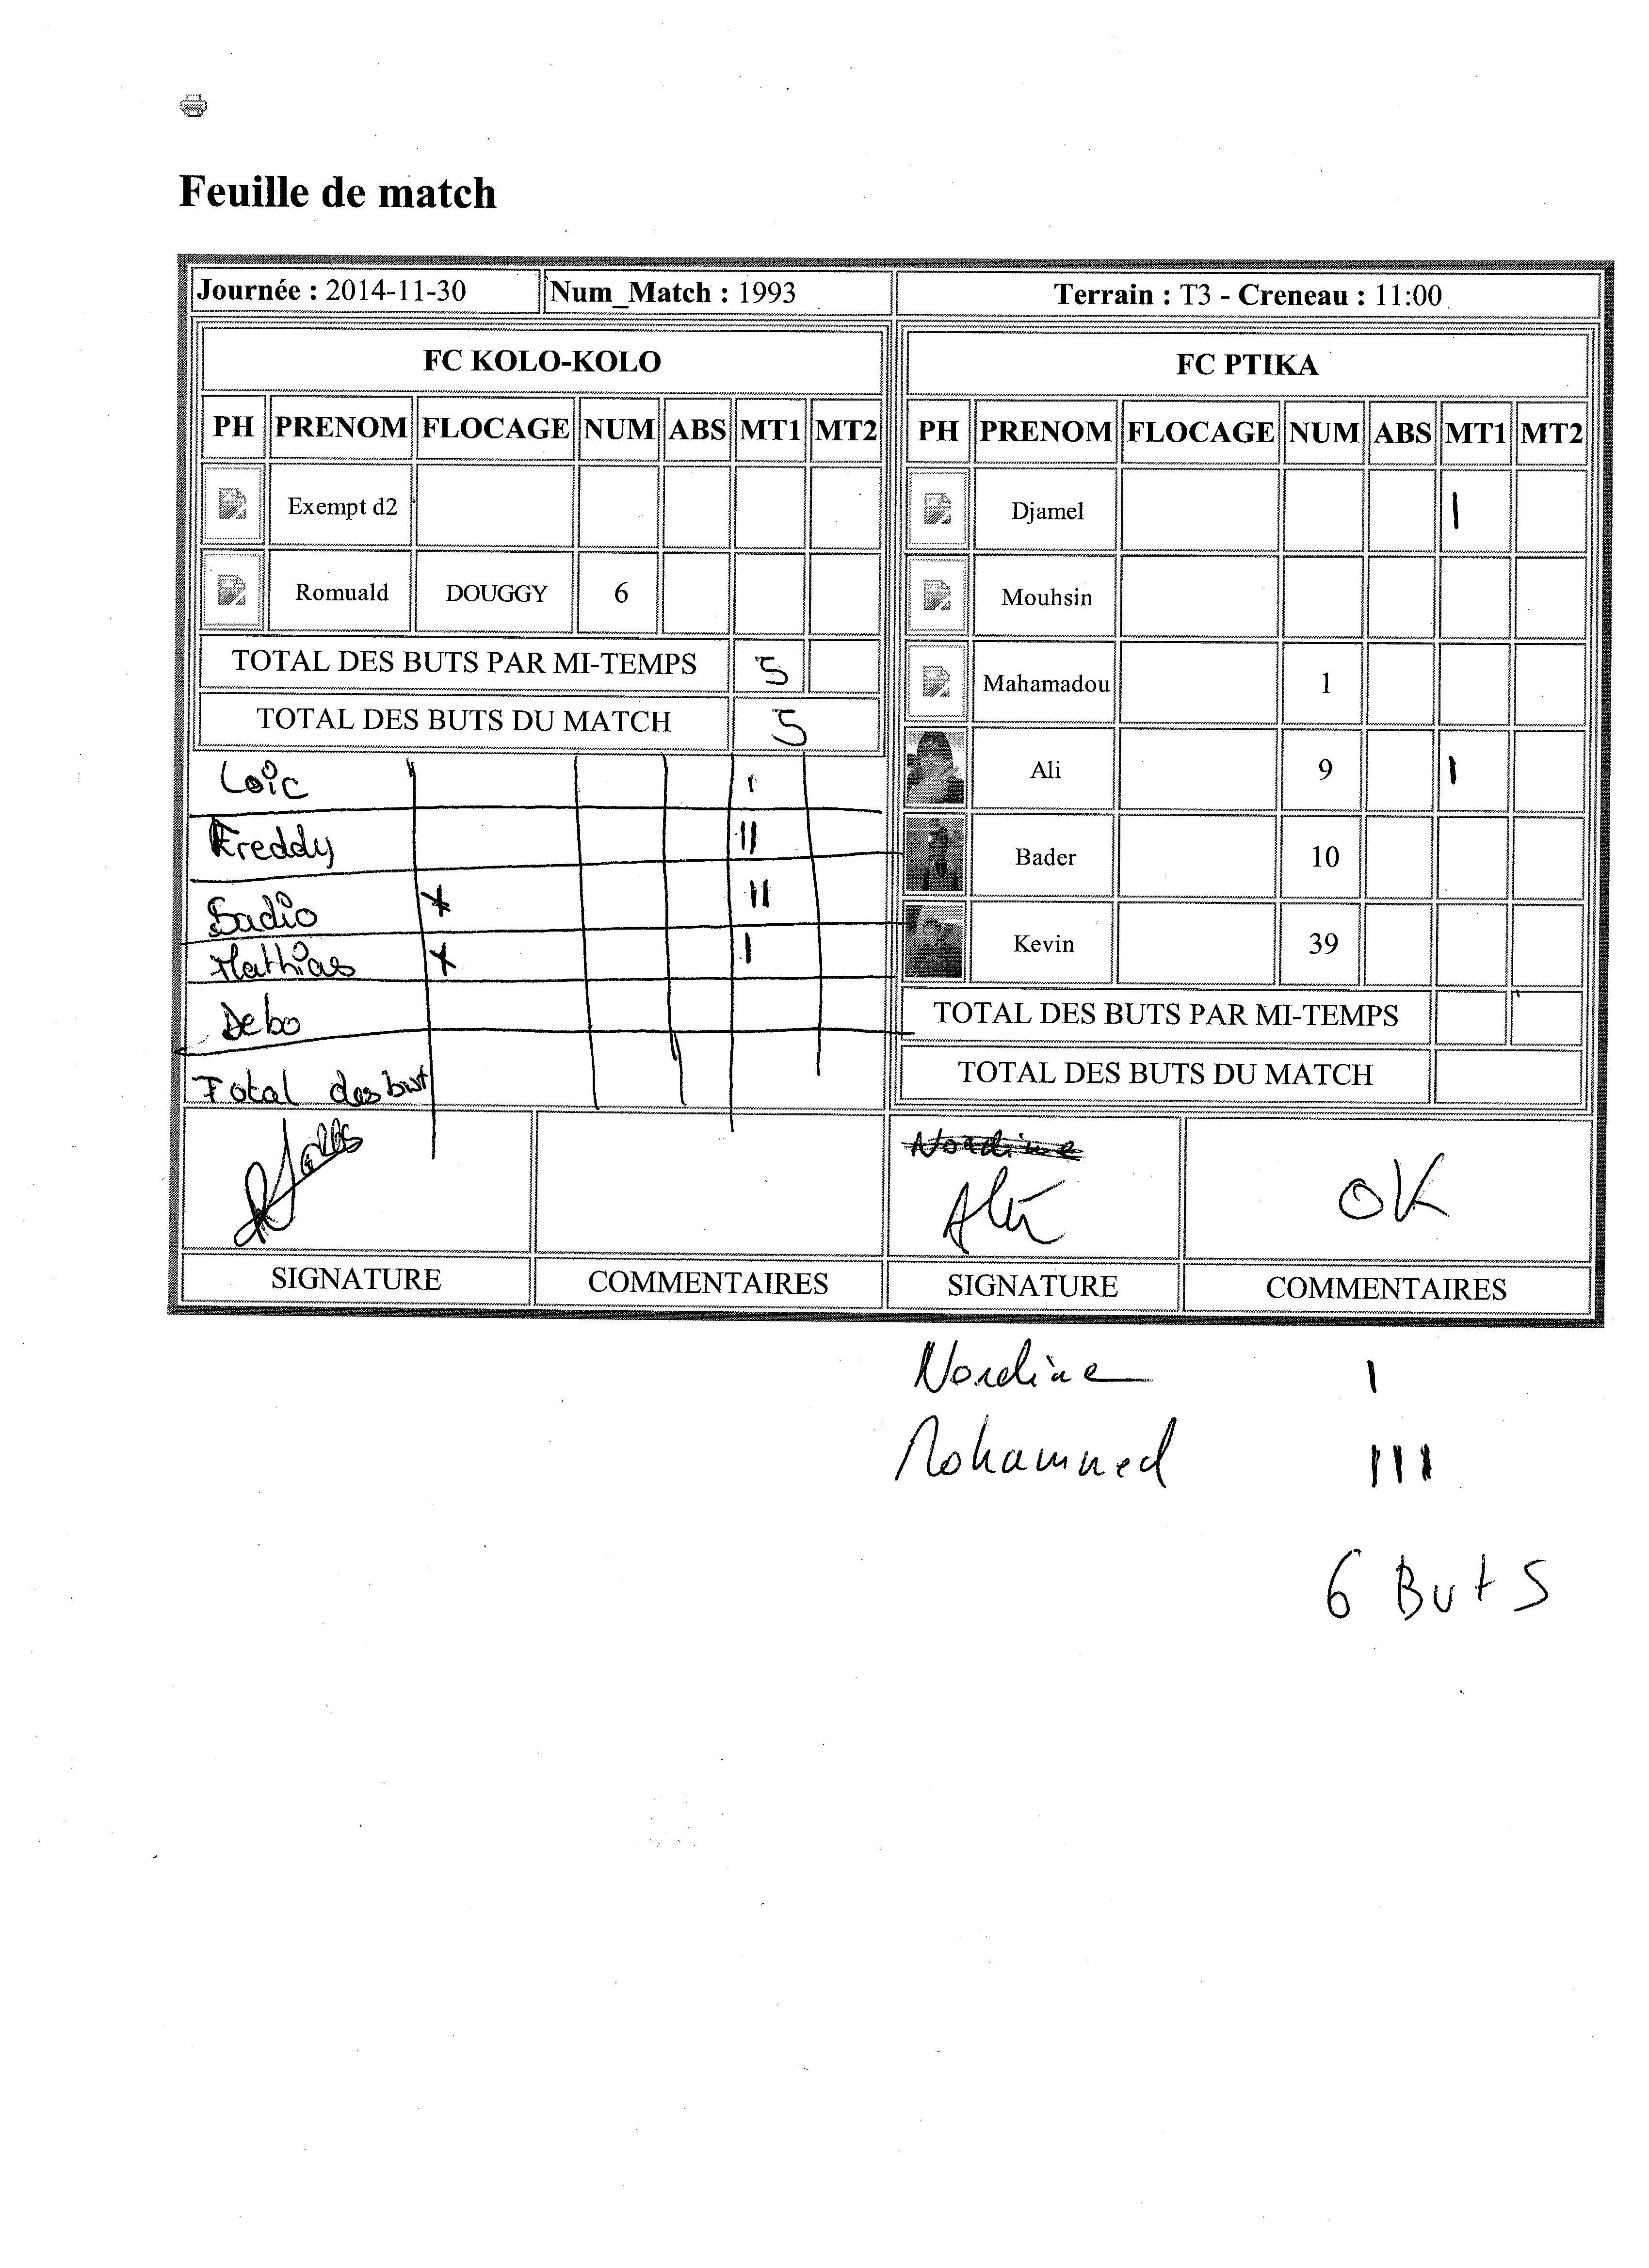 Feuille de match
Journée : 2014-11-30 Num_Match : 1993 Terrain : T3 - Creneau : 11:00
FC KOLO-KOLO
PH PRENOM FLOCAGE NUM ABS MT1 MT2
Exempt d2
Romuald DOUGGY 6
TOTAL DES BUTS PAR MI-TEMPS 5
TOTAL DES BUTS DU MATCH 5
Loïc I
Freddy II
Sadio x II
Mathias x I
Debo
Total des but
FC PTIKA
PH PRENOM FLOCAGE NUM ABS MT1 MT2
Djamel I
Mouhsin
Mahamadou 1
Ali 9 I
Bader 10
Kevin 39
TOTAL DES BUTS PAR MI-TEMPS
TOTAL DES BUTS DU MATCH
Nordine
Ali OK
SIGNATURE COMMENTAIRES SIGNATURE COMMENTAIRES
Nordine I
Mohammed III
6 Buts